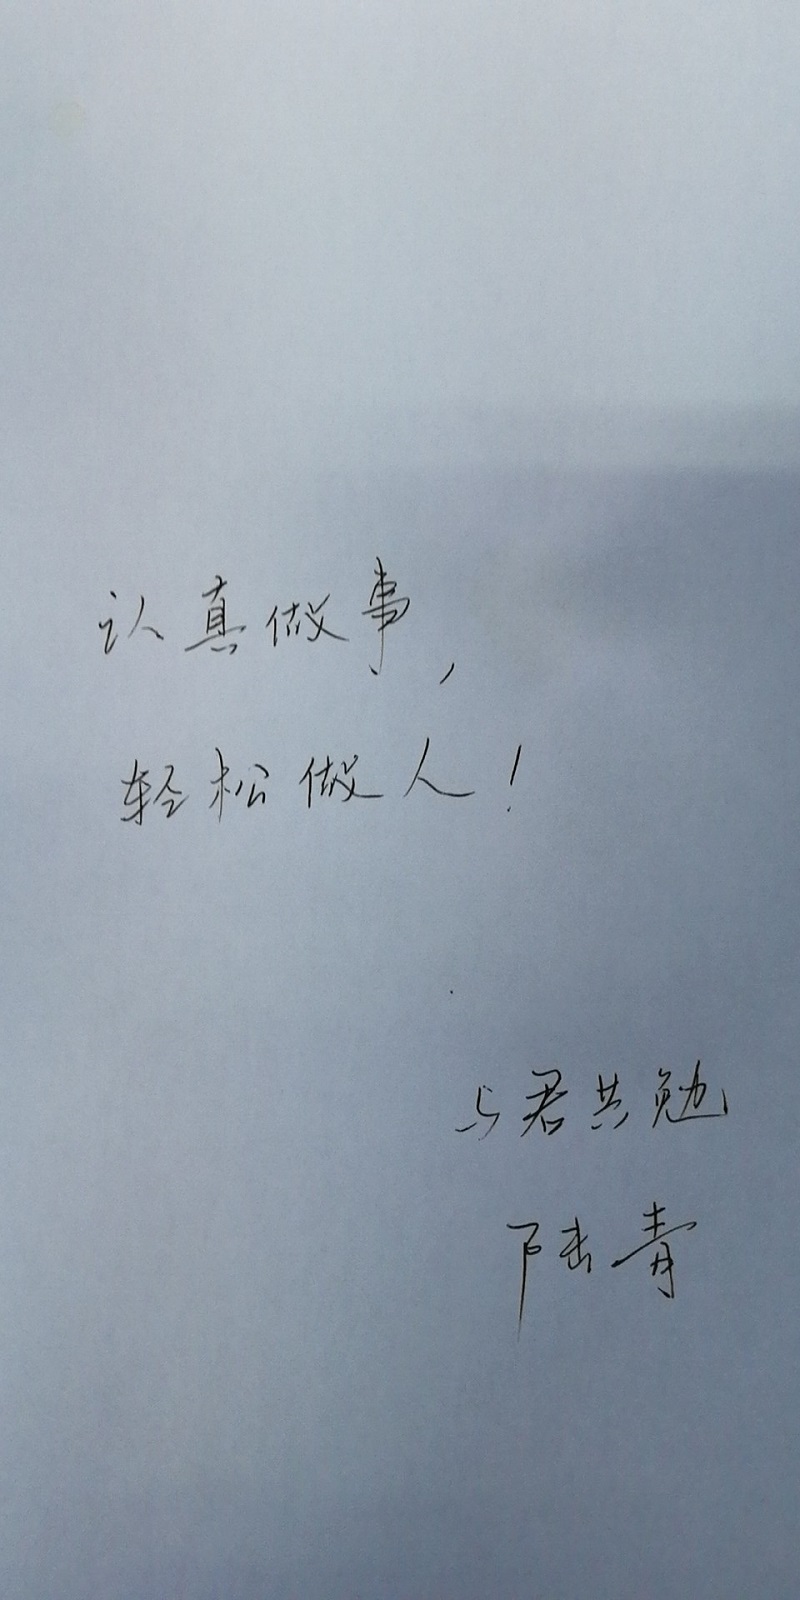 认真做事，
轻松做人！
与君共勉
陆青